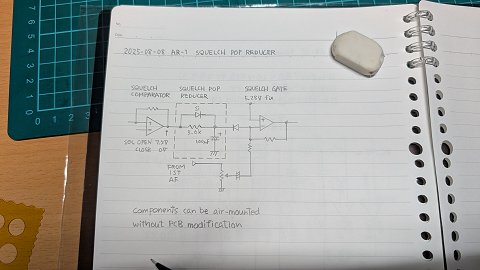 No.
Date
2025-08-08 AR-1 SQUELCH POP REDUCER
SQUELCH COMPARATOR
SQUELCH POP REDUCER
SQUELCH GATE
SQL OPEN 7.5V
CLOSE 0V
FROM 1ST AF
Components can be air-mounted
without PCB modification